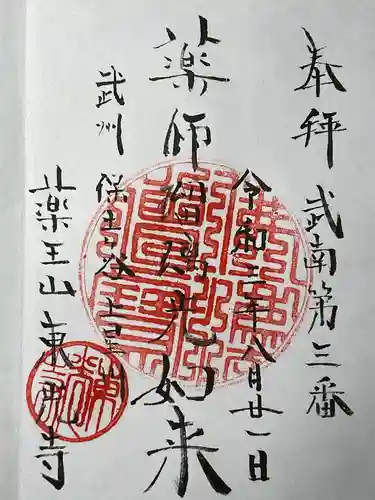 奉拝 武南第三番
令和三年八月廿一日
薬師瑠璃光如来
武州 保土ヶ谷 上星川
薬王山 東光寺